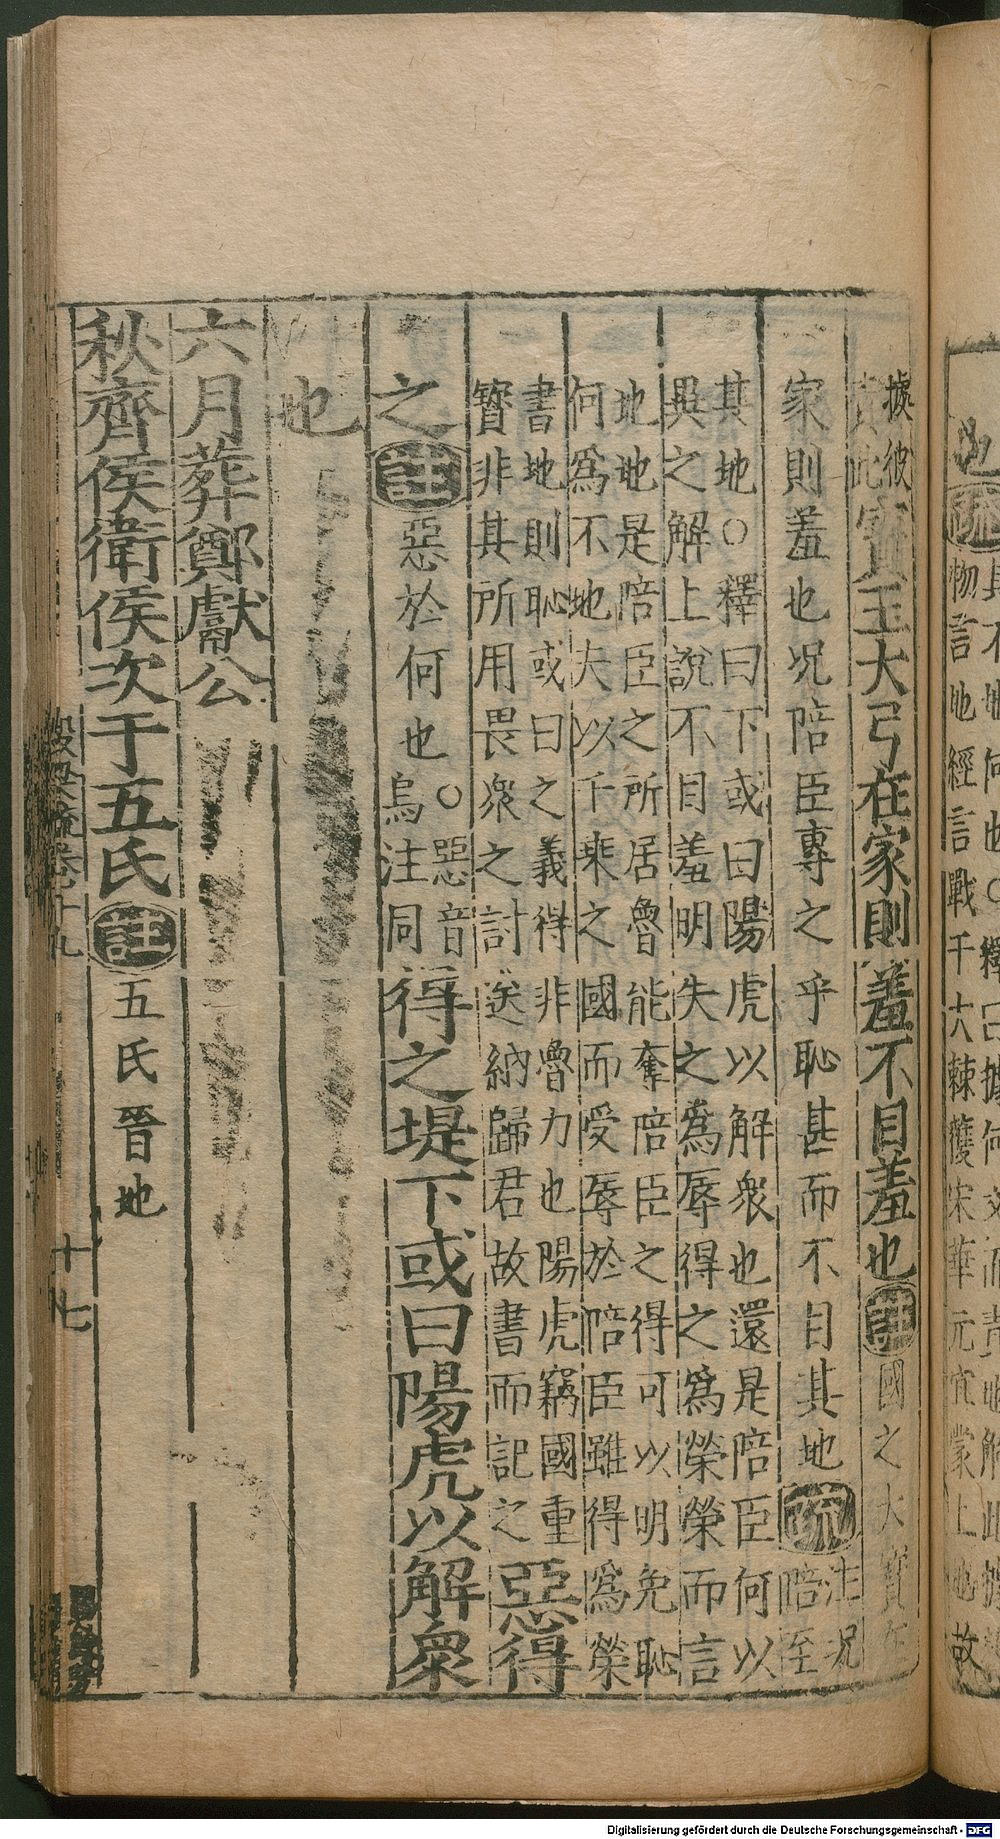 據彼
責此寶玉大弓在家則羞不目羞也註國之大寶在
家則羞也況陪臣專之乎恥甚而不目其地疏注況
陪至
其地○釋曰下或曰陽虎以解衆也還是陪臣何以
異之解上說不目羞明失之爲辱得之爲榮榮而言
地地是陪臣之所居魯能奪陪臣之得可以明免恥
何爲不地夫以千乘之國而受辱於陪臣雖得爲榮
書地則恥或曰之義得非魯力也陽虎竊國重
寶非其所用畏衆之討送納歸君故書而記之惡得
之註惡於何也○惡音
烏注同得之堤下或曰陽虎以解衆
也
六月葬鄭獻公
秋齊侯衛侯次于五氏註五氏晉地
穀梁疏卷十九
十七
物言地經言戰于大棘獲宋華元
上地故
Digitalisierung gefördert durch die Deutsche Forschungsgemeinschaft - DFG